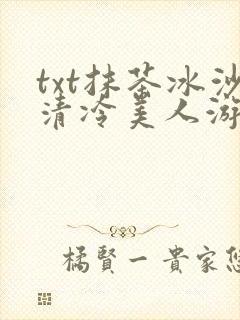 txt抹茶冰沙
清冷美人游
橘賢一貴家悠